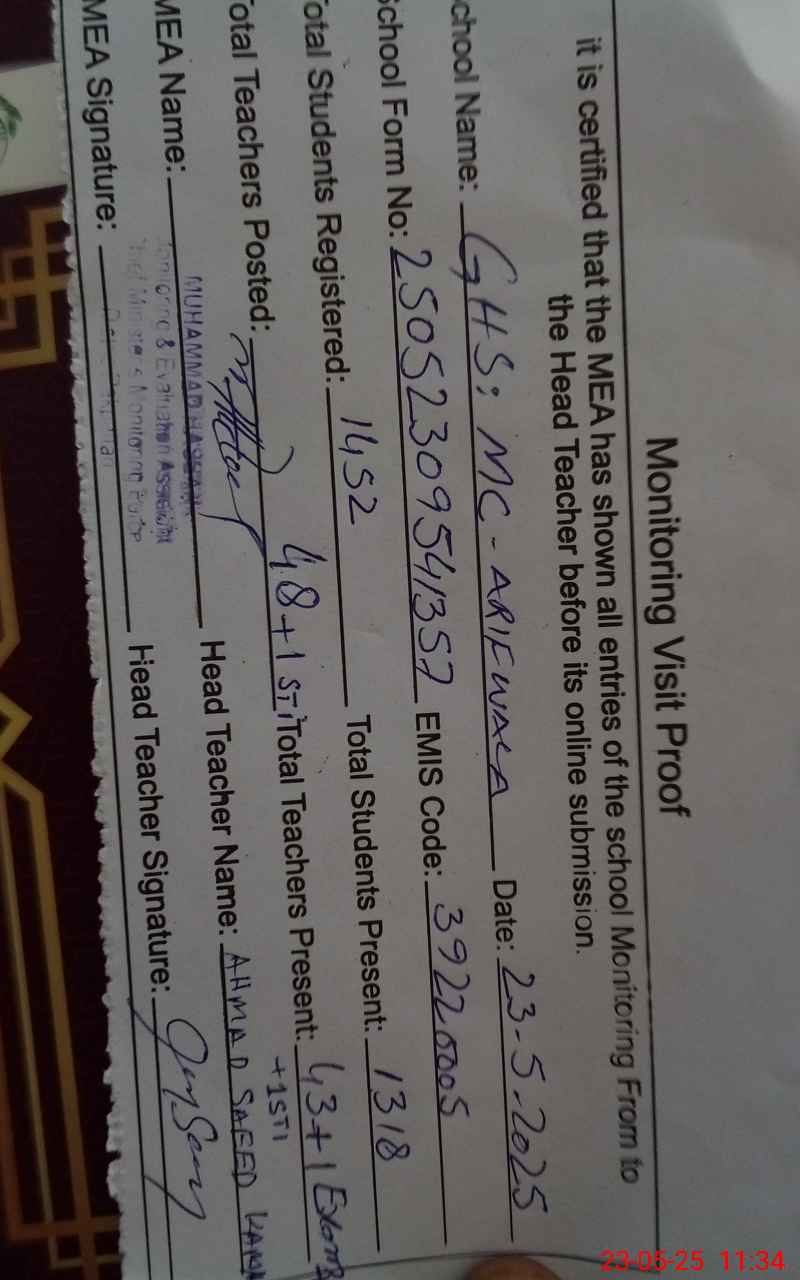 Monitoring Visit Proof
it is certified that the MEA has shown all entries of the school Monitoring From to
the Head Teacher before its online submission.
chool Name: GHS: MC - ARIFWALA Date: 23-5-2025
School Form No: 25052309541357 EMIS Code: 39220005
otal Students Registered: 1452 Total Students Present: 1318
otal Teachers Posted: 48+1 STI Total Teachers Present: 43+1 Exam
+1STI
MEA Name: MUHAMMAD Head Teacher Name: AHMAD SAEED
Monitoring & Evaluation Assistant
Chief Minister's Monitoring Force
MEA Signature: Head Teacher Signature:
23-05-25 11:34